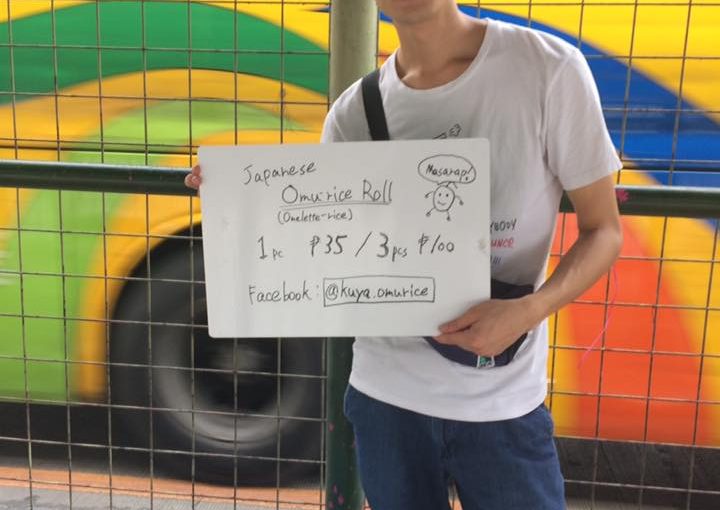 Japanese
Omurice Roll
(Omelette-rice)
Masarap!
1pc ₱35 / 3pcs ₱100
Facebook: @kuya.omurice